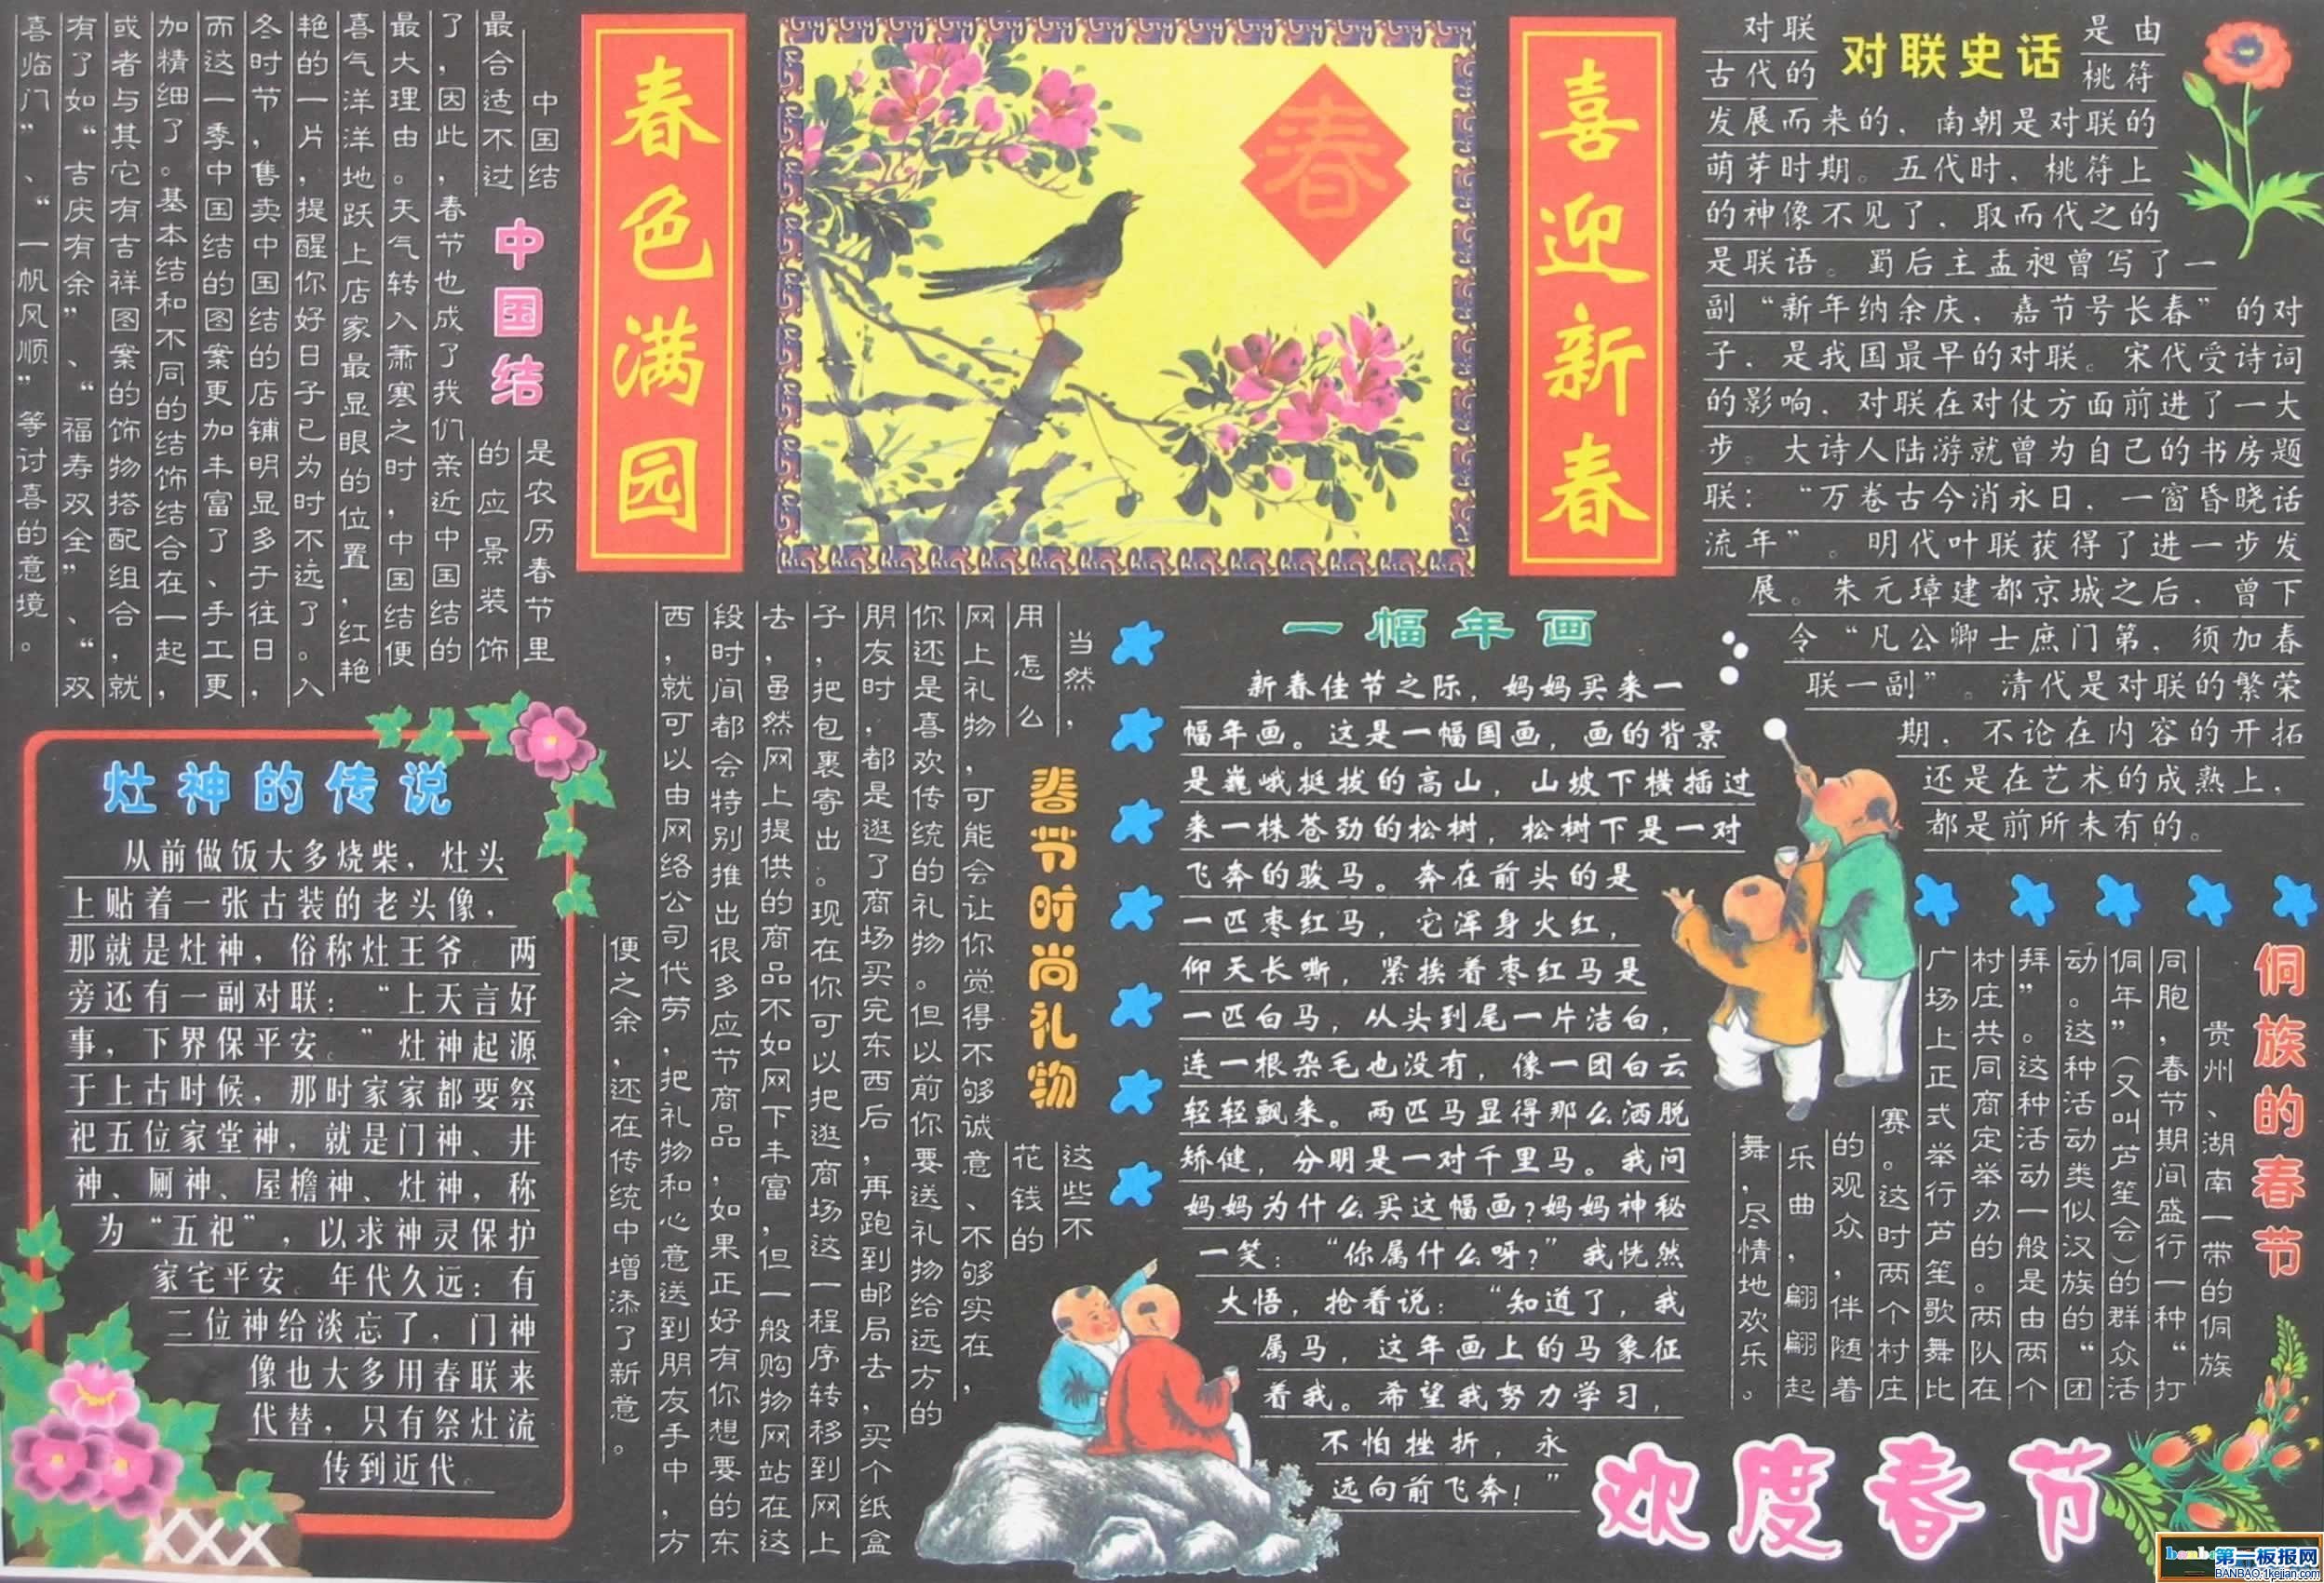 春色满园
春
喜迎新春
中国结
中国结
最合适不过
是农历春节里
的应景装饰
了，因此，春节也成了我们亲近中国结的
最大理由。天气转入萧寒之时，中国结便
喜气洋洋地跃上店家最显眼的位置，红艳
艳的一片，提醒你好日子已为时不远了。入
冬时节，售卖中国结的店铺明显多于往日，
而这一季中国结的图案更加丰富了、手工更
加精细了。基本结和不同的结饰结合在一起，
或者与其它有吉祥图案的饰物搭配组合，就
有了如“吉庆有余”、“福寿双全”、“双
喜临门”、“一帆风顺”等讨喜的意境。
对联史话
对联是由
古代的桃符
发展而来的，南朝是对联的
萌芽时期。五代时，桃符上
的神像不见了，取而代之的
是联语。蜀后主孟昶曾写了一
副“新年纳余庆，嘉节号长春”的对
子，是我国最早的对联。宋代受诗词
的影响，对联在对仗方面前进了一大
步。大诗人陆游就曾为自己的书房题
联：“万卷古今消永日，一窗昏晓话
流年”。明代叶联获得了进一步发
展。朱元璋建都京城之后，曾下
令“凡公卿士庶门第，须加春
联一副”。清代是对联的繁荣
期，不论在内容的开拓
还是在艺术的成熟上，
都是前所未有的。
灶神的传说
从前做饭大多烧柴，灶头
上贴着一张古装的老头像，
那就是灶神，俗称灶王爷。两
旁还有一副对联：“上天言好
事，下界保平安。”灶神起源
于上古时候，那时家家都要祭
祀五位家堂神，就是门神、井
神、厕神、屋檐神、灶神，称
为“五祀”，以求神灵保护
家宅平安。年代久远：有
二位神给淡忘了，门神
像也大多用春联来
代替，只有祭灶流
传到近代。
春节时尚礼物
当然，这些不
用怎么花钱的
网上礼物，可能会让你觉得不够诚意、不够实在，
你还是喜欢传统的礼物。但以前你要送礼物给远方的
朋友时，都是逛了商场买完东西后，再跑到邮局去，买个纸盒
子，把包裹寄出。现在你可以把逛商场这一程序转移到网上
去，虽然网上提供的商品不如网下丰富，但一般购物网站在这
段时间都会特别推出很多应节商品，如果正好有你想要的东
西，就可以由网络公司代劳，把礼物和心意送到朋友手中，方
便之余，还在传统中增添了新意。
一幅年画
新春佳节之际，妈妈买来一
幅年画。这是一幅国画，画的背景
是巍峨挺拔的高山，山坡下横插过
来一株苍劲的松树，松树下是一对
飞奔的骏马。奔在前头的是
一匹枣红马，它浑身火红，
仰天长嘶，紧挨着枣红马是
一匹白马，从头到尾一片洁白，
连一根杂毛也没有，像一团白云
轻轻飘来。两匹马显得那么洒脱
矫健，分明是一对千里马。我问
妈妈为什么买这幅画?妈妈神秘
一笑：“你属什么呀?”我恍然
大悟，抢着说：“知道了，我
属马，这年画上的马象征
着我。希望我努力学习，
不怕挫折，永
远向前飞奔！”
侗族的春节
贵州、湖南一带的侗族
同胞，春节期间盛行一种“打
侗年”（又叫芦笙会）的群众活
动。这种活动类似汉族的“团
拜”。这种活动一般是由两个
村庄共同商定举办的。两队在
广场上正式举行芦笙歌舞比
赛。这时两个村庄
的观众，伴随着
乐曲，翩翩起
舞，尽情地欢乐。
欢度春节
第一板报网
BANBAO.1kejian.com